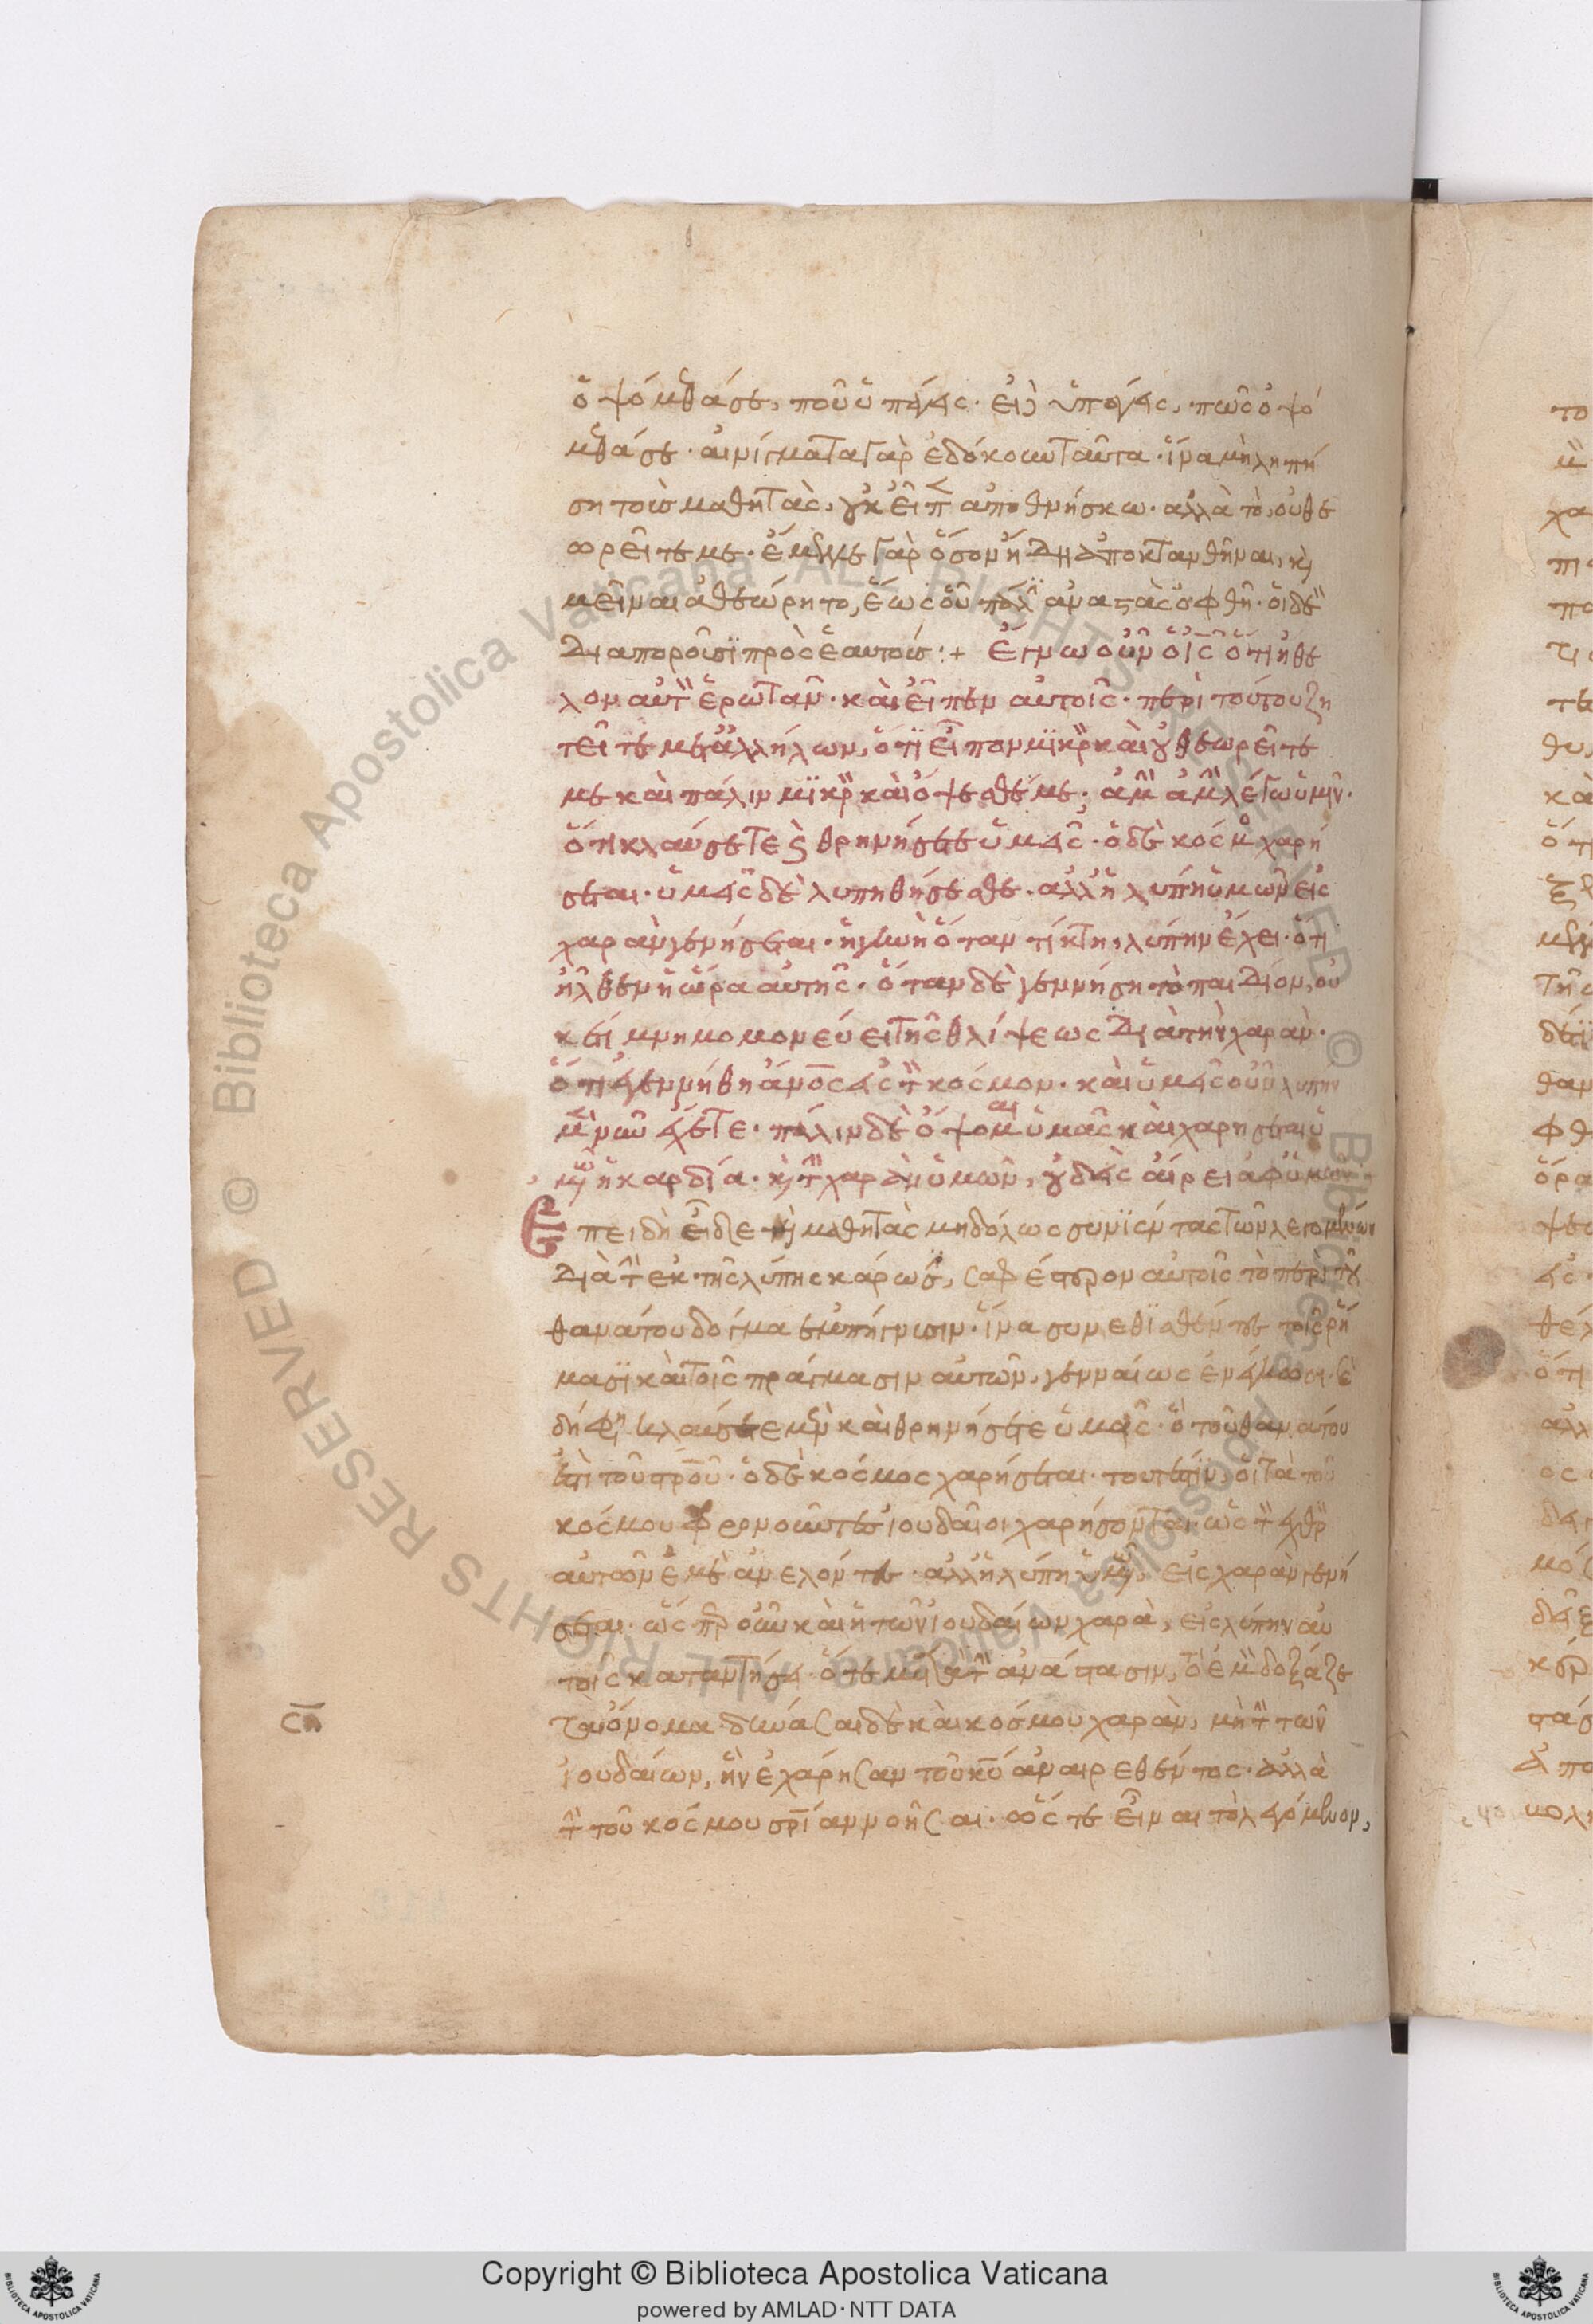 ὀψόμεθά σε, ποῦ ὑπάγεις· εἰ ὑπάγεις, πῶς ὀψό
μεθά σε· αἰνίγματα γὰρ ἐδόκουν ταῦτα· ἵνα μὴ λυπή
ση τοὺς μαθητὰς, οὐκ εἶπ ἀποθνήσκω· ἀλλὰ τὸ, οὐ θε
ωρεῖτέ με· ἔμελλε γὰρ ὅσον ἤδη ἀποκτανθῆναι, κ
μεῖναι ἀθεώρητος, ἕως οὗ πάλ ἀναστὰς ὀφθῆ· οἱ δὲ
διαποροῦσι πρὸς ἑαυτούς:+ Ἔγνω οὖν ὁ ις ὅτι ἤθε
λον αὐτ ἐρωτᾶν· καὶ εἶπεν αὐτοῖς· περὶ τούτου ζη
τεῖτε μετ ἀλλήλων, ὅτι εἶπον μικρ καὶ οὐ θεωρεῖτέ
με καὶ πάλιν μικρ καὶ ὄψεσθέ με· ἀμ ἀμ λέγω ὑμῖν·
ὅτι κλαύσετε κ θρηνήσετε ὑμεῖς· ὁ δὲ κόσμ χαρή
σεται· ὑμεῖς δὲ λυπηθήσεσθε· ἀλλ ἡ λύπη ὑμῶν εἰς
χαρὰν γενήσεται· ἡ γυνὴ ὅταν τίκτη, λύπην ἔχει· ὅτι
ἦλθεν ἡ ὥρα αὐτῆς· ὅταν δὲ γεννήση τὸ παιδίον, οὐ
κέτι μνημονονεύει τῆς θλίψεως διὰ τὴν χαρὰν·
ὅτι ἐγεννήθη ἄνος εἰς τ κόσμον· καὶ ὑμεῖς οὖν λύπην
μὲν νῦν ἔχετε· πάλιν δὲ ὄψομαι ὑμᾶς καὶ χαρήσεται ὑ
μῶν ἡ καρδία· κ τ χαρὰν ὑμῶν, οὐδεὶς αἴρει ἀφ ὑμῶν·
Ἐπειδὴ εἶδε τοὺς μαθητὰς μηδόλως συνιέντας τῶν λεγομένων
διὰ τ ἐκ τῆς λύπης κάρωσ, σαφέστερον αὐτοῖς τὸ περὶ τοῦ
θανάτου δόγμα ἵνα συνεθισθέντες τοῖς ῥή
μασι καὶ τοῖς πράγμασιν αὐτῶν, γενναίως ἐνέγκωσι·
δή φη κλαύσετε μὲν καὶ θρηνήσετε ὑμεῖς· τοῦ θανάτου
ἐπὶ τοῦ στροῦ· ὁ δὲ κόσμος χαρήσεται· τουτέστιν, οἱ τὰ τοῦ
κόσμου φρονοῦντες ἰουδαῖοι χαρήσονται· ὡς τ ἐχθρ
αὐτῶν ἐμὲ ἀνελόντες· ἀλλ ἡ λύπη ὑμῶν, εἰς χαρὰν γενή
σεται· ὥσπερ οὖν καὶ ἡ τῶν ἰουδαίων χαρὰ, εἰς λύπην αὐ
τοῖς καταντήσει· ὅτε μετὰ τ ἀνάστασιν, τὸ ἐμ δοξάζε
ται ὄνομα· δύνασαι δὲ καὶ κόσμου χαρὰν, μὴ τ τῶν
ἰουδαίων, ἣν ἐχάρησαν τοῦ κυ ἀναιρεθέντος· ἀλλὰ
τ τοῦ κόσμου σρίαν νοῆσαι· ὥστε εἶναι τὸ λεγόμενον,